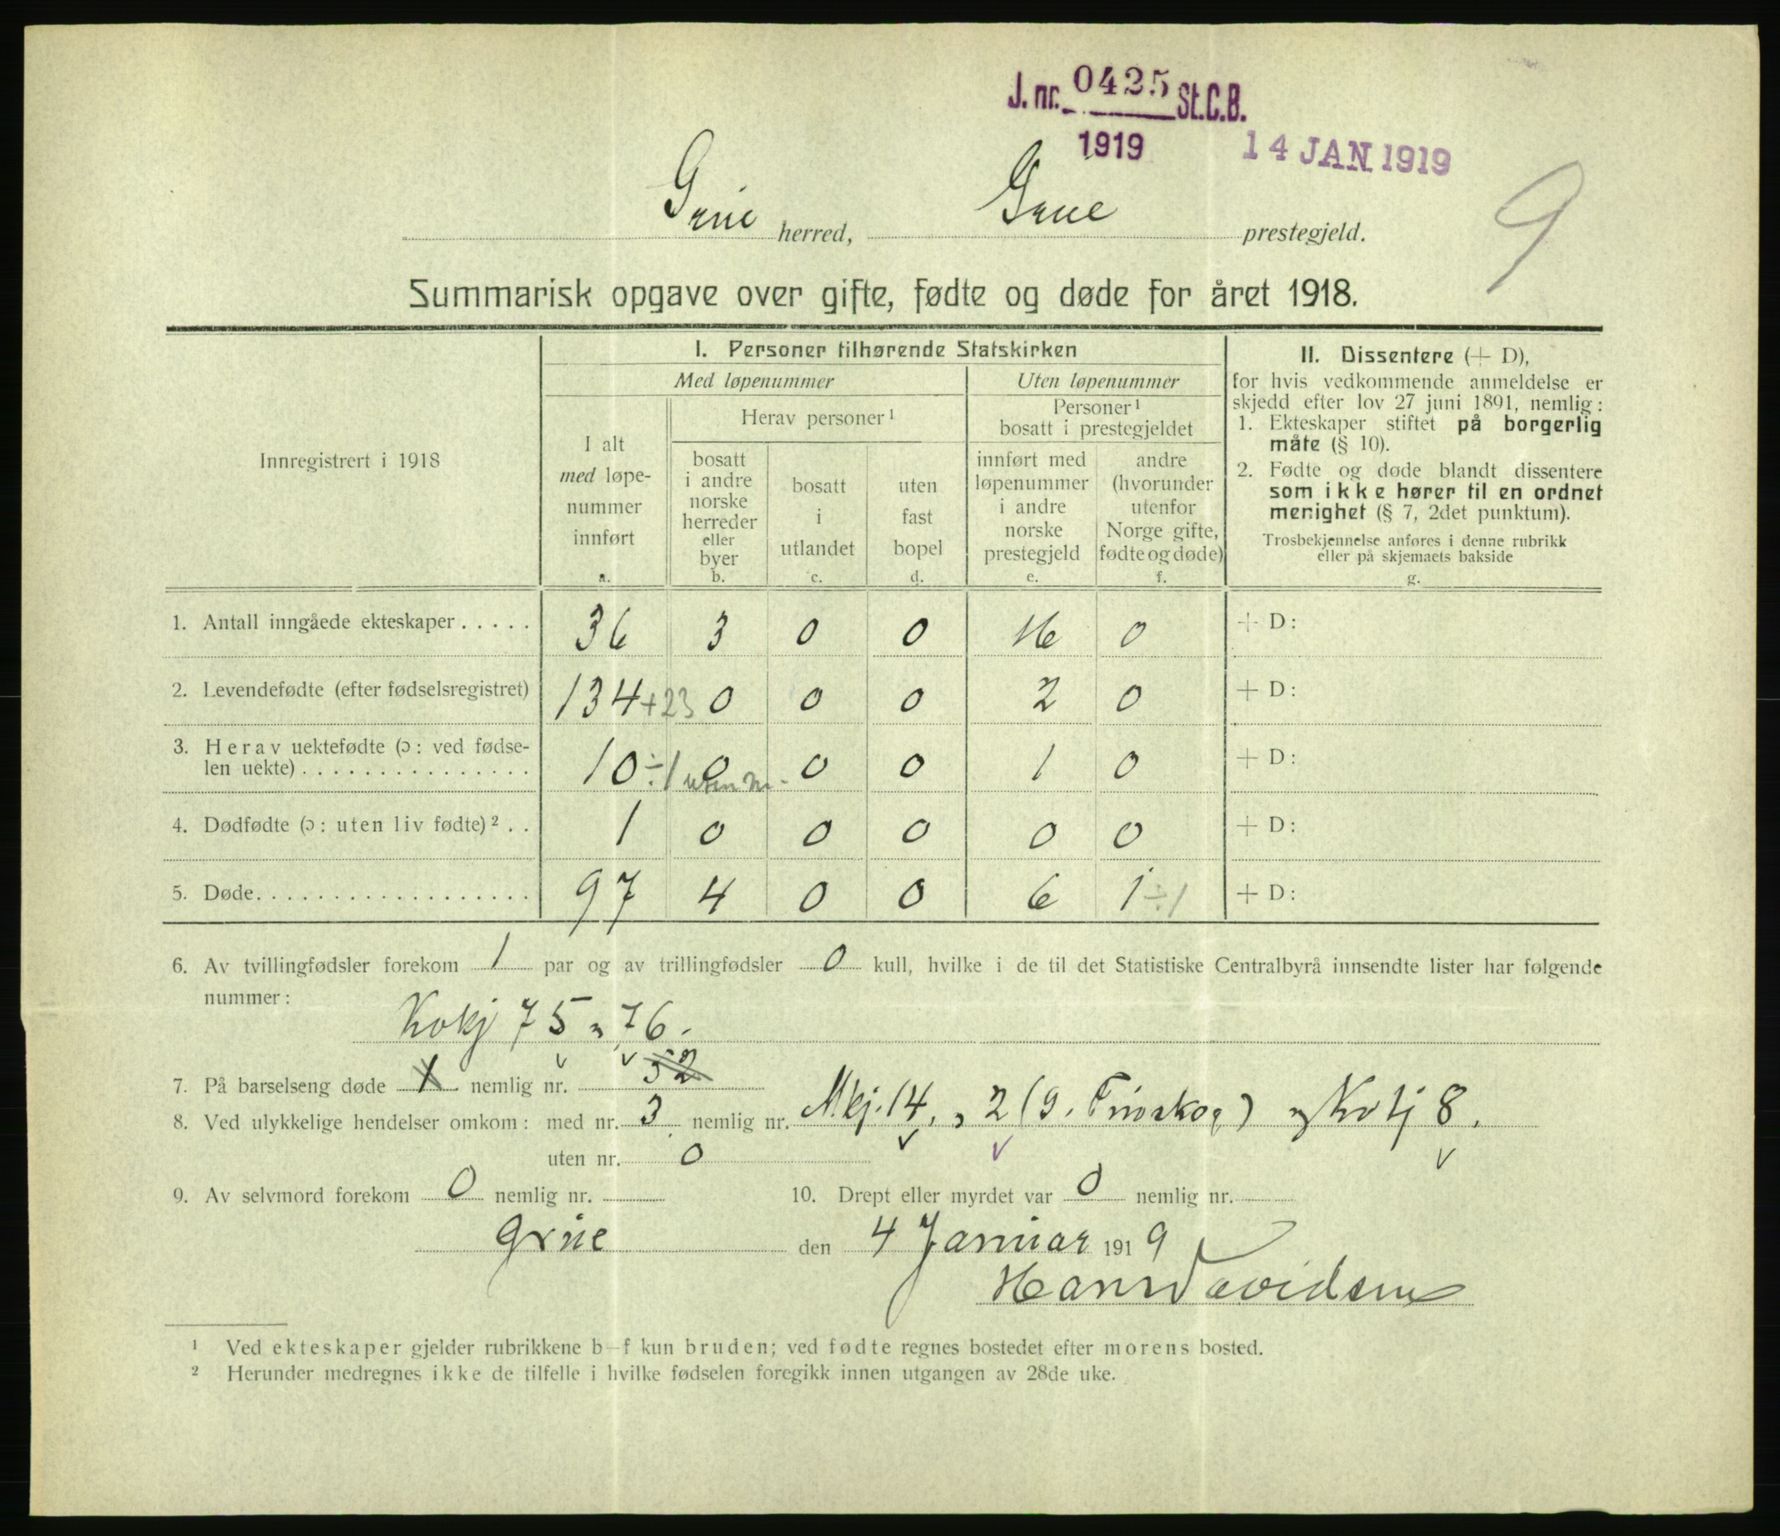 J. nr. 0425 St.C.B.
1919 14 JAN 1919
9
Grue herred, Grue prestegjeld.
Summarisk opgave over gifte, fødte og døde for året 1918.
Innregistrert i 1918
I. Personer tilhørende Statskirken
Med løpenummer
Uten løpenummer
I alt
med løpe-
nummer
innført
a.
Herav personer ¹
bosatt
i andre
norske
herreder
eller
byer
b.
bosatt
i
utlandet
c.
uten
fast
bopel
d.
Personer ¹
bosatt i prestegjeldet
innført med
løpenummer
i andre
norske
prestegjeld
e.
andre
(hvorunder
utenfor
Norge gifte,
fødte og døde)
f.
II. Dissentere (+ D),
for hvis vedkommende anmeldelse er
skjedd efter lov 27 juni 1891, nemlig:
1. Ekteskaper stiftet på borgerlig
måte (§ 10).
2. Fødte og døde blandt dissentere
som ikke hører til en ordnet
menighet (§ 7, 2det punktum).
Trosbekjennelse anføres i denne rubrikk
eller på skjemaets bakside
g.
1. Antall inngåede ekteskaper . . . . . 36 3 0 0 16 0 + D:
2. Levendefødte (efter fødselsregistret) 134 +23 0 0 0 2 0 + D:
3. Herav uektefødte (ɔ: ved fødse-
len uekte) . . . . . . . . . . . . . . . 10 ÷1 uten nr. 0 0 0 1 0 + D:
4. Dødfødte (ɔ: uten liv fødte) ² . . 1 0 0 0 0 0 + D:
5. Døde. . . . . . . . . . . . . . . . . . 97 4 0 0 6 1 ÷1 + D:
6. Av tvillingfødsler forekom 1 par og av trillingfødsler 0 kull, hvilke i de til det Statistiske Centralbyrå innsendte lister har følgende
nummer:
Kvkj 75 „ 76.
7. På barselseng døde 1 nemlig nr. 52
8. Ved ulykkelige hendelser omkom: med nr. 3 nemlig nr. Mkj. 14, „ 2 (g. Finskog) „ Kvkj 8.
uten nr. 0
9. Av selvmord forekom 0 nemlig nr.
10. Drept eller myrdet var 0 nemlig nr.
Grue den 4 Januar 1919
Hans Davidsen
¹ Ved ekteskaper gjelder rubrikkene b–f kun bruden; ved fødte regnes bostedet efter morens bosted.
² Herunder medregnes ikke de tilfelle i hvilke fødselen foregikk innen utgangen av 28de uke.